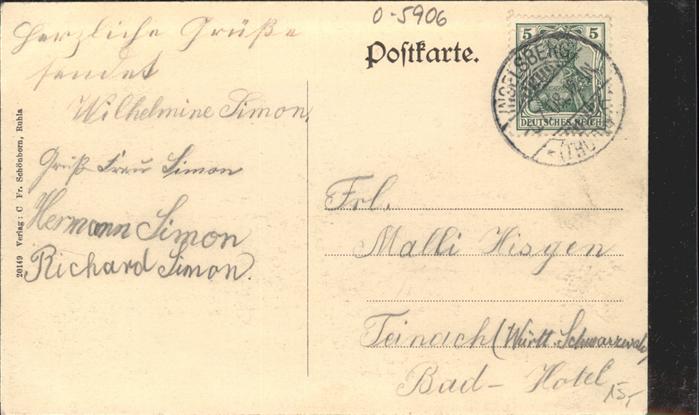 0-5906
Herzliche Grüße
sendet
Wilhelmine Simon.
Gruß Frau Simon
Hermann Simon
Richard Simon.
20149 Verlag: C Fr. Schönborn, Ruhla
Postkarte.
5 5
DEUTSCHES REICH
INSELSBERG
(THÜR.)
Frl.
Malli Hisgen
Teinach (Württ. Schwarzwald)
Bad-Hotel